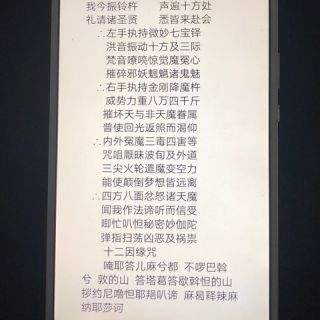 我今振铃杵 声遍十方处
礼请诸圣贤 悉皆来赴会
∴左手执持微妙七宝铎
洪音振动十方及三际
梵音嘹喨惊觉魔冤心
摧碎邪妖魑魅诸鬼魅
∴右手执持金刚降魔杵
威势力重八万四千斤
摧坏天与非天魔眷属
普使回光返照而渴仰
∴内外冤魔三毒四害等
咒咀厭昧波旬及外道
三尖火轮遣魔变空力
能使颠倒梦想皆远离
∴四方八面忿怒诸天魔
闻我作法谛听而信受
唧忙叭怛秘密妙伽陀
弹指扫荡凶恶及祸祟
十二因缘咒
唵耶答儿麻兮都 不啰巴斡
兮 敦的山 答塔葛答歇斡怛的山
拶约尼噜怛耶耙叭谛 麻曷释辣麻
纳耶莎诃